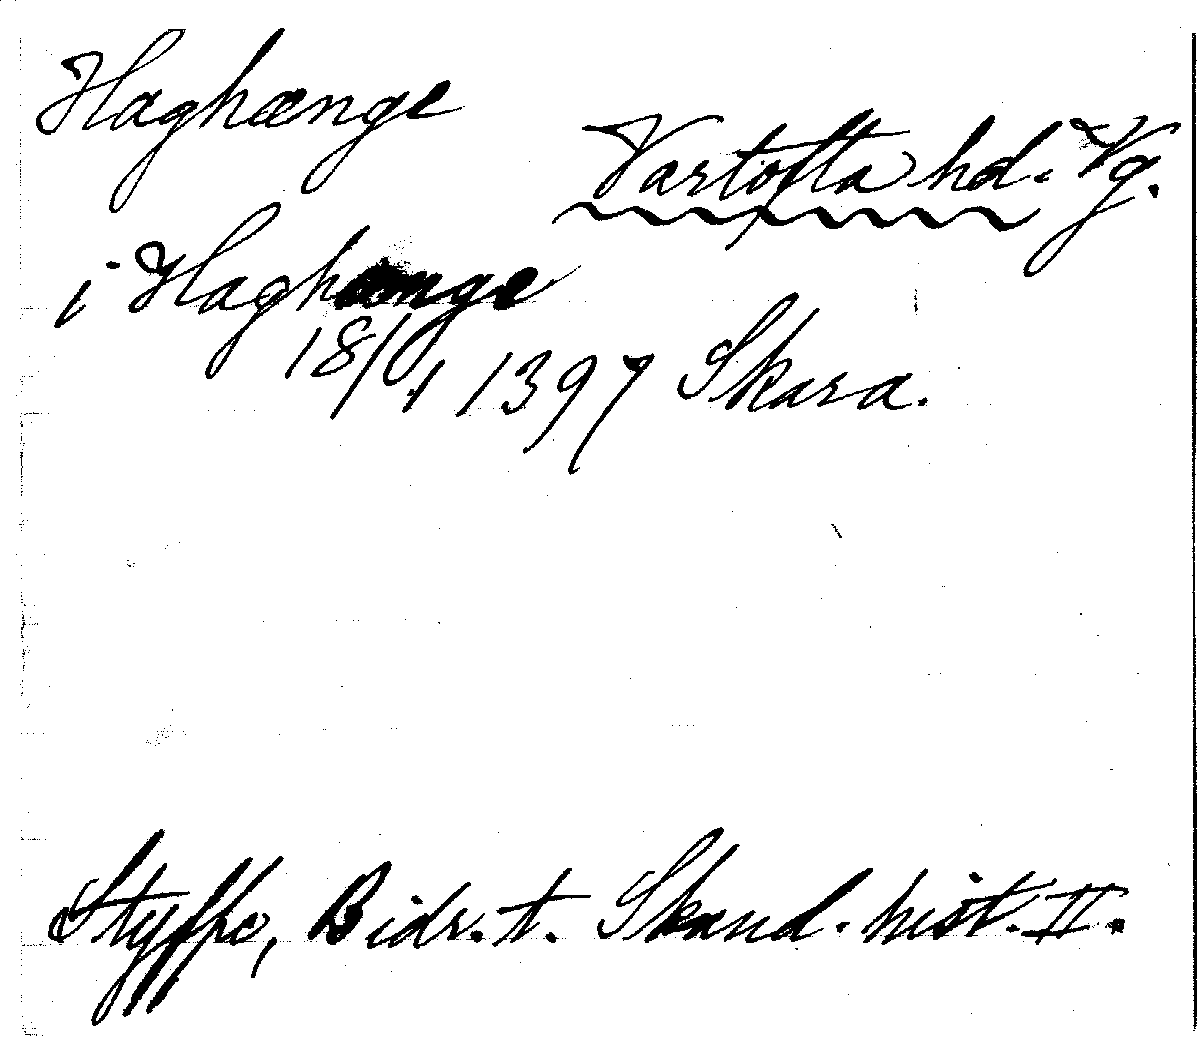 Haghænge
Vartofta hd. Vg.
i Haghænge
18/4 1397 Skara.
Styffe, Bidr. t. Skand. hist. II.